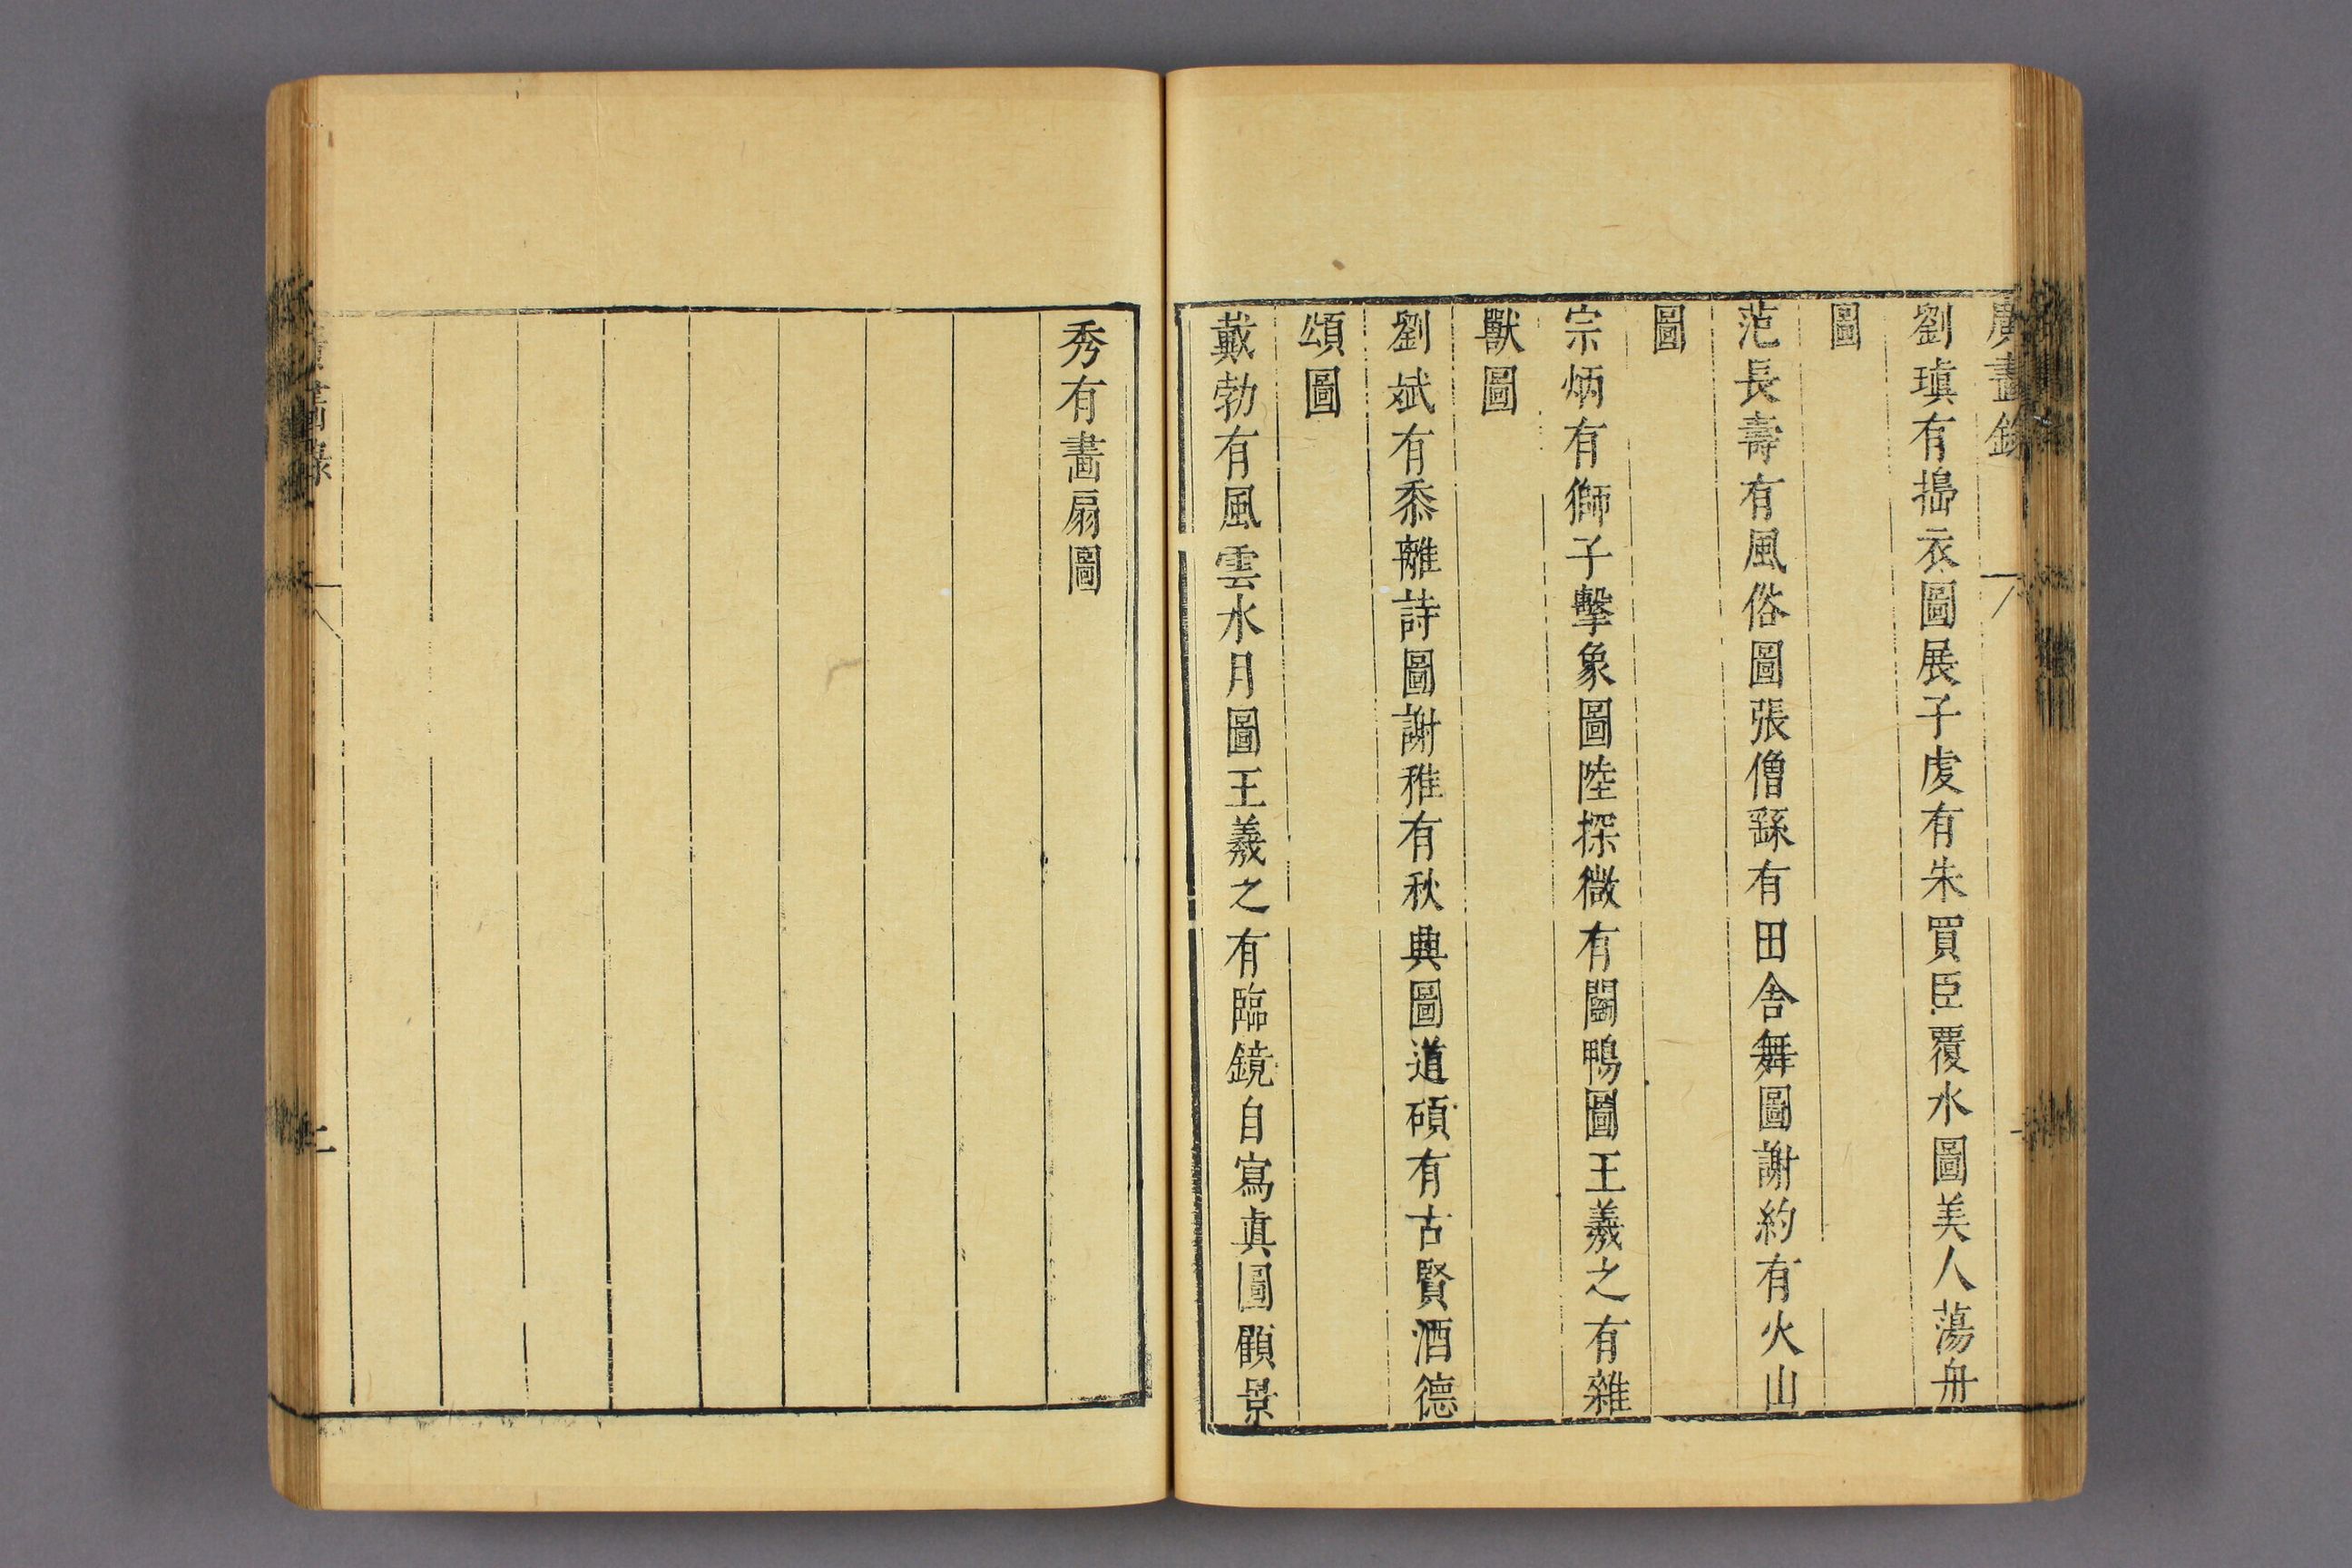 廣畫錄
劉瑱有搗衣圖展子虔有朱買臣覆水圖美人蕩舟
圖
范長壽有風俗圖張僧繇有田舍舞圖謝約有火山
圖
宗炳有獅子擊象圖陸探微有鬭鴨圖王羲之有雜
獸圖
劉斌有黍離詩圖謝稚有秋興圖道碩有古賢酒德
頌圖
戴勃有風雲水月圖王羲之有臨鏡自寫真圖顧景
秀有畵扇圖
廣畫錄
二